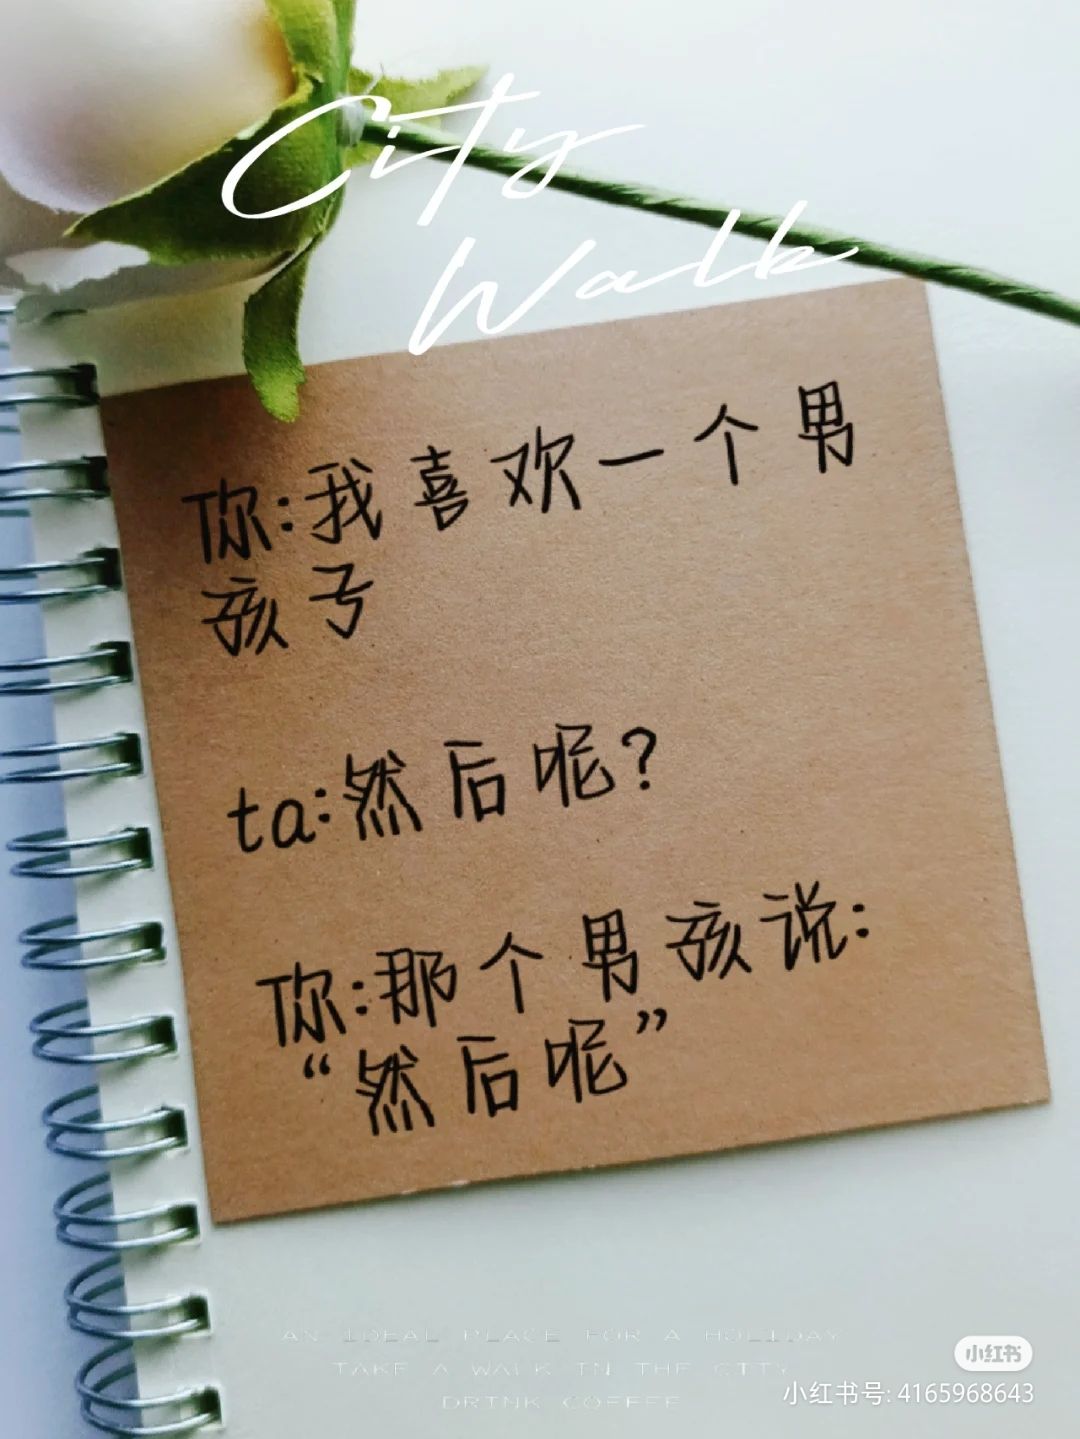 City
Walk
你:我喜欢一个男
孩子
ta:然后呢?
你:那个男孩说:
“然后呢”
AN IDEAL PLACE FOR A HOLIDAY
TAKE A WALK IN THE CITY
DRINK COFFEE
小红书
小红书号: 4165968643